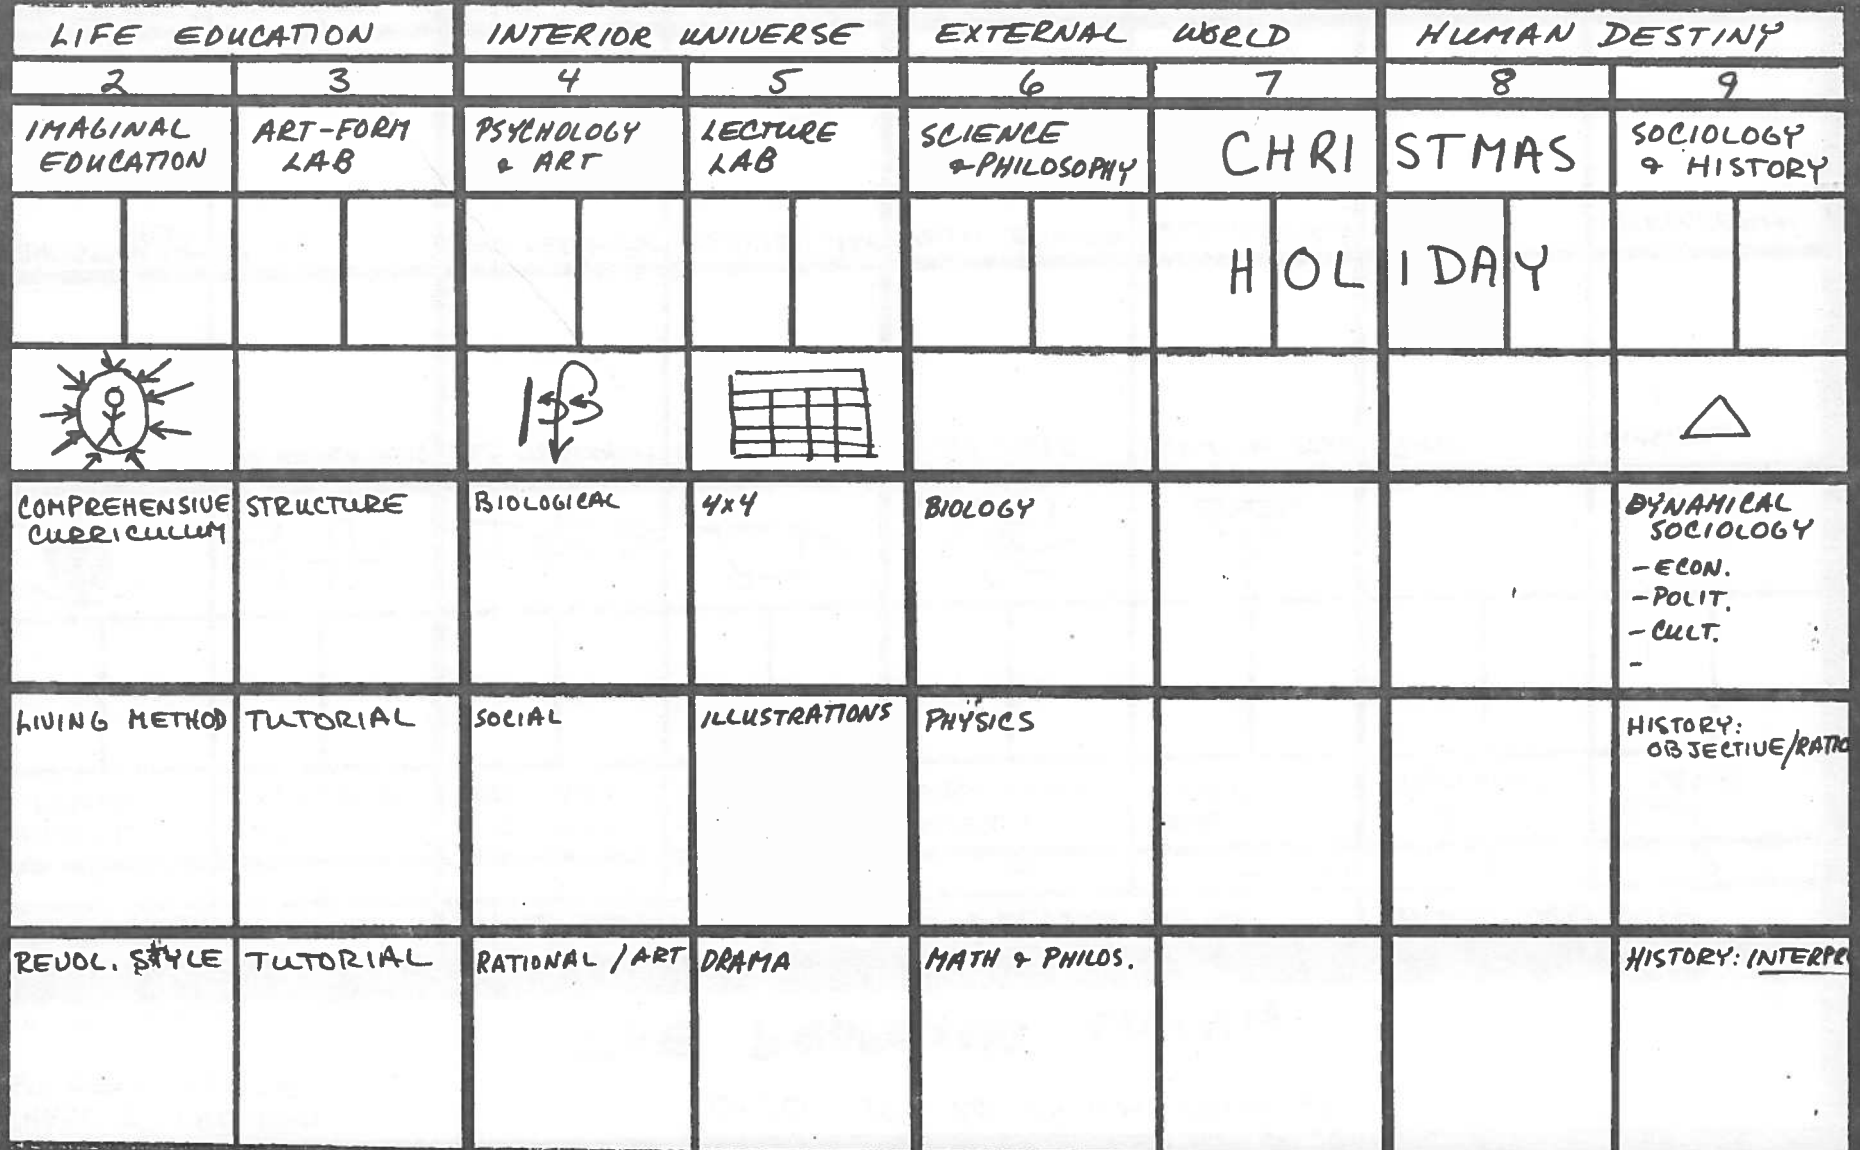 LIFE EDUCATION INTERIOR UNIVERSE EXTERNAL WORLD HUMAN DESTINY
2 3 4 5 6 7 8 9
IMAGINAL ART-FORM PSYCHOLOGY LECTURE SCIENCE CHRISTMAS SOCIOLOGY
EDUCATION LAB & ART LAB & PHILOSOPHY & HISTORY
HOLIDAY
COMPREHENSIVE STRUCTURE BIOLOGICAL 4x4 BIOLOGY DYNAMICAL
CURRICULUM SOCIOLOGY
- ECON.
- POLIT.
- CULT.
-
LIVING METHOD TUTORIAL SOCIAL ILLUSTRATIONS PHYSICS HISTORY:
OBJECTIVE/RATIO
REVOL. STYLE TUTORIAL RATIONAL / ART DRAMA MATH & PHILOS. HISTORY: INTERPR